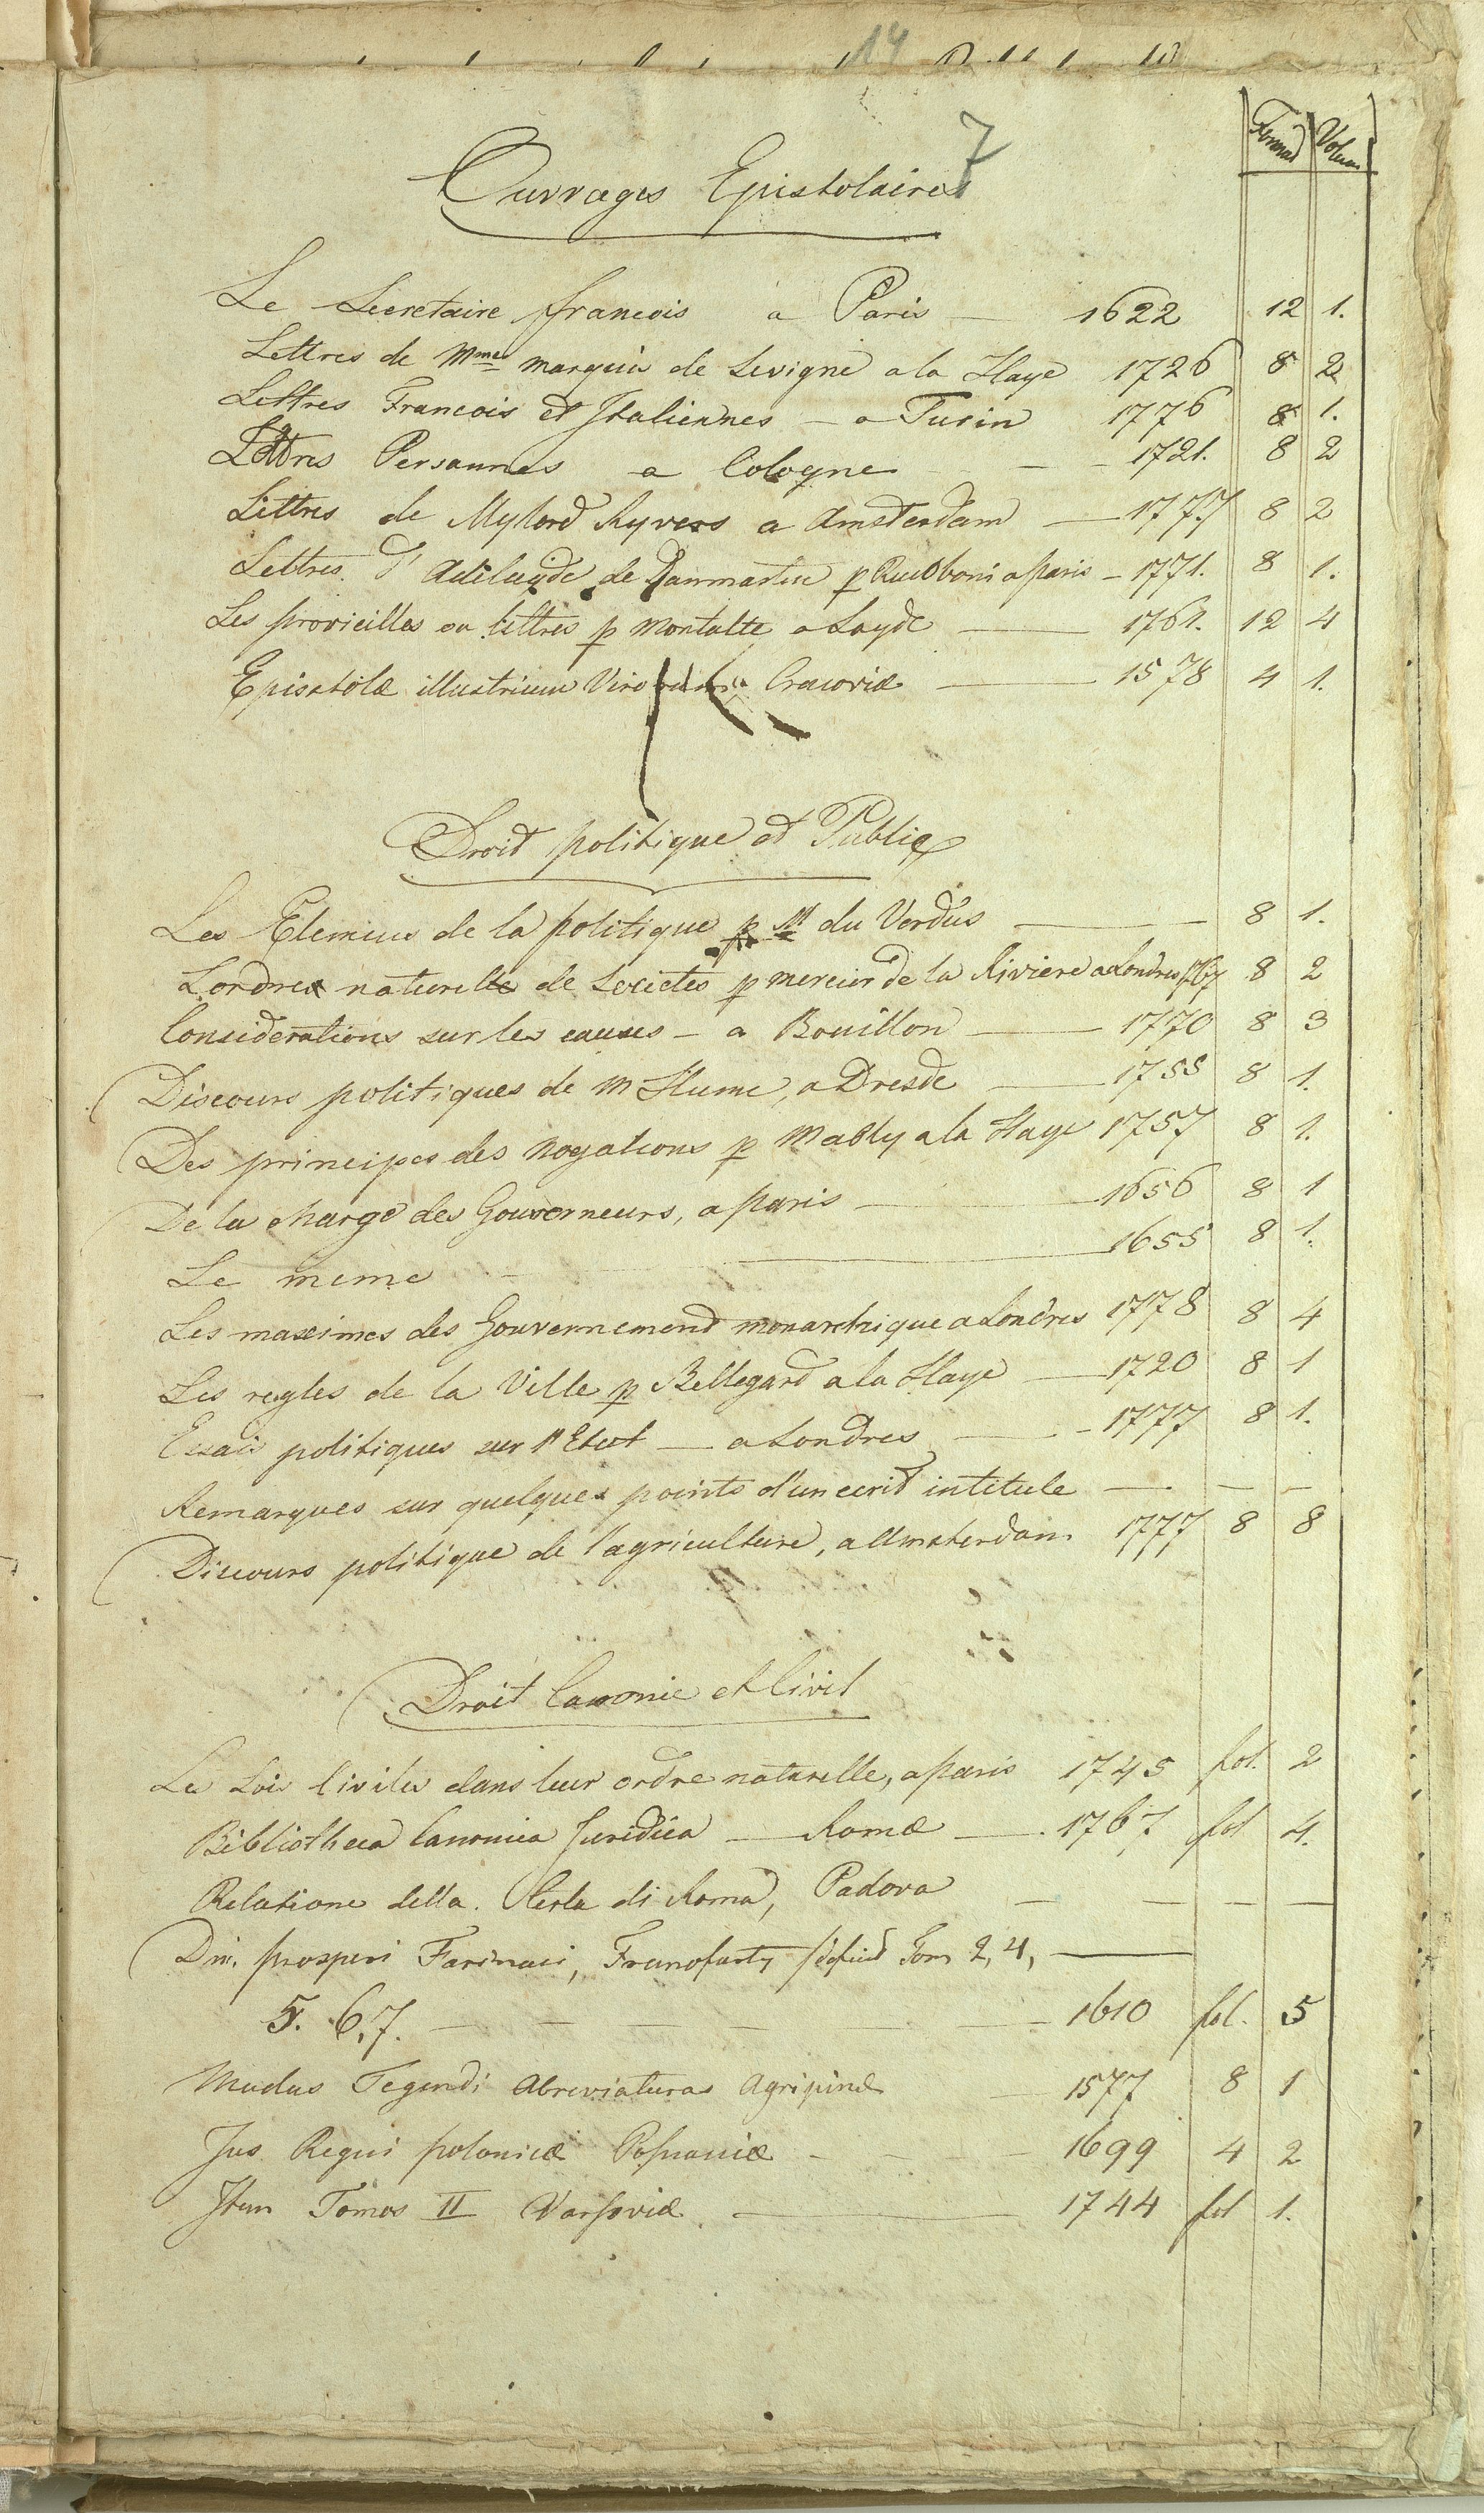 14
7
Format Volum
Ouvrages Epistolaires
Le Secretaire francois a Paris — 1622 12 1.
Lettres de Mme marquis de Sevigne a la Haye 1726 8 2
Lettres Francois et Italiennes — a Turin 1776 8 1.
Lettres Persannes a Cologne — 1721. 8 2
Lettres de Mylord Ryvers a Amsterdam — 1777 8 2
Lettres d'Adelayde de Danmartin p Riccoboni a paris — 1771. 8 1.
Les provicilles ou lettres p Montalte a Layde — 1761. 12 4
Epistolæ illustrium Virorum Cracoviæ — 1578 4 1.
Droit politique et Publiq
Les Elemens de la politique p Mr du Verdus — 8 1.
Lordre naturelle de Societes p mercier de la Riviere a Londres 1767 8 2
Considerations sur les causes — a Bouillon — 1770 8 3
Discours politiques de M Hume, a Dresde — 1755 8 1.
Des principes des nogations p Mably a la Haye 1757 8 1.
De la charge des Gouverneurs, a paris — 1656 8 1
Le meme — 1655 8 1.
Les maximes des Gouvernement monarchique a Londres 1778 8 4
Les regles de la Ville p Bellegard a la Haye — 1720 8 1
Essais politiques sur l'Etat — a Londres — 1777 8 1.
Remarques sur quelques points d'un ecrit intitule — — —
Discours politique de l'agriculture, a Amsterdam 1777 8 8
Droit Canonic et Civil
Le Lois Civiles dans leur ordre naturelle, a paris 1745 fol. 2
Bibliotheca Canonica Juridica — Romæ — 1767 fol 4.
Relatione della. Corta di Roma, Padova — — — —
Dni. prosperi Farinaci, Francofurty Tom 2, 4, —
5. 6, 7. — 1610 fol. 5
Modus Tegendi Abreviaturas Agripinæ — 1577 8 1
Jus Regni poloniæ Posnaniæ — 1699 4 2
Item Tomos II Varsoviæ — 1744 fol 1.